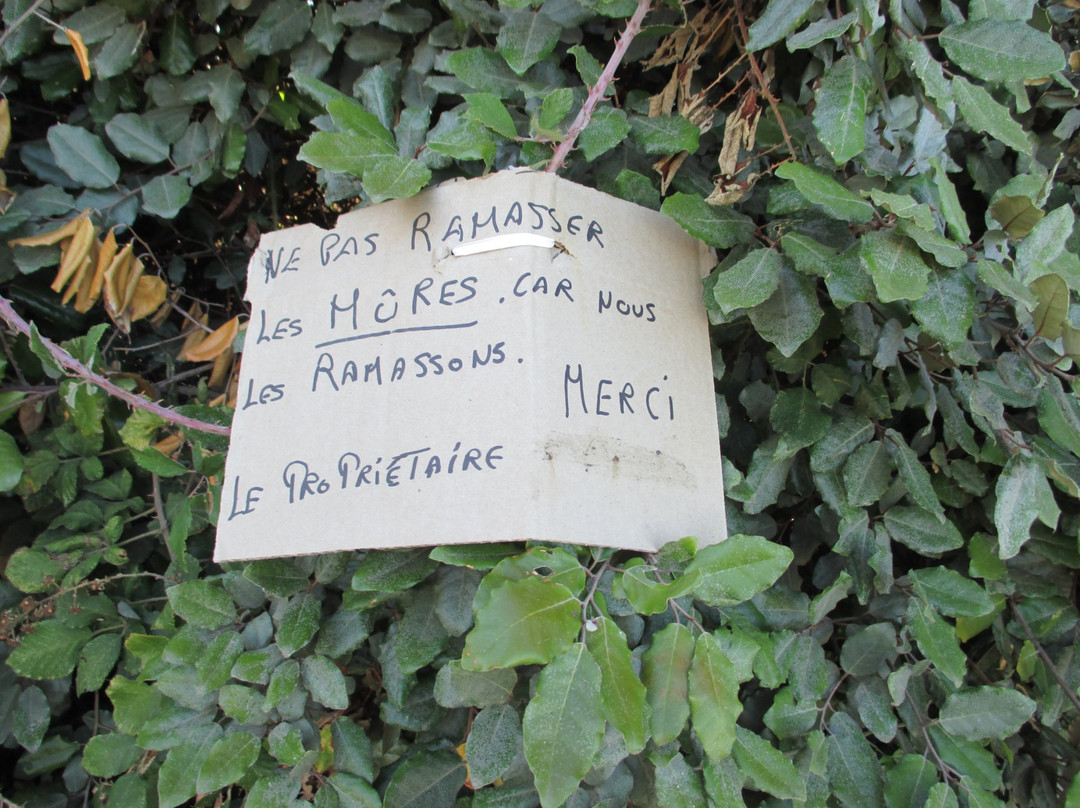 NE PAS RAMASSER
LES MÛRES. CAR NOUS
LES RAMASSONS.
MERCi
LE PROPRIÉTAIRE